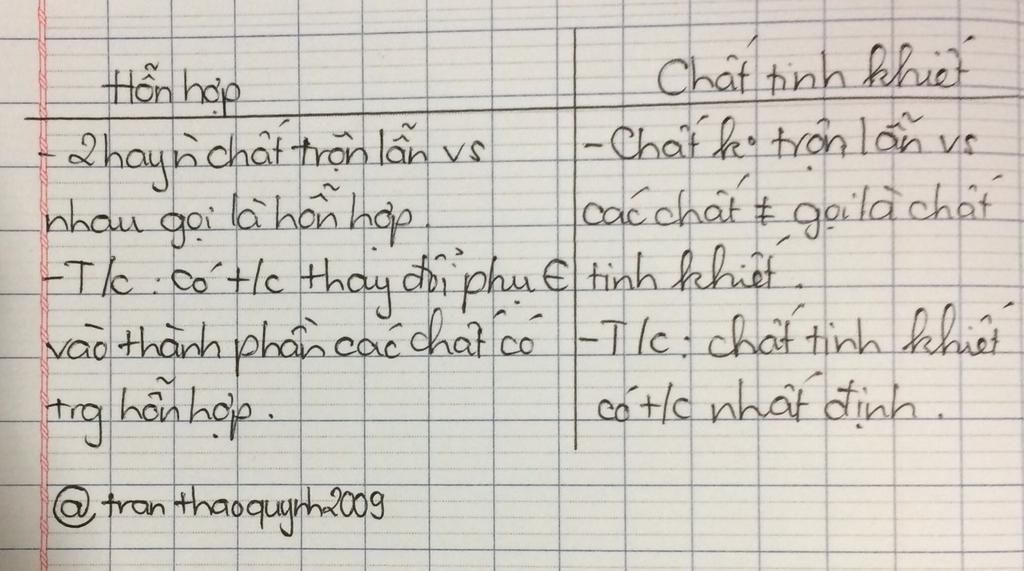 Hỗn hợp
- 2 hay n` chất trộn lẫn vs
nhau gọi là hỗn hợp.
- T/c : có t/c thay đổi phụ ∈
vào thành phần các chất có
trg hỗn hợp.
Chất tinh khiết
- Chất k° trộn lẫn vs
các chất ≠ gọi là chất
tinh khiết.
- T/c : chất tinh khiết
có t/c nhất định.
@tranthaoquynh2009